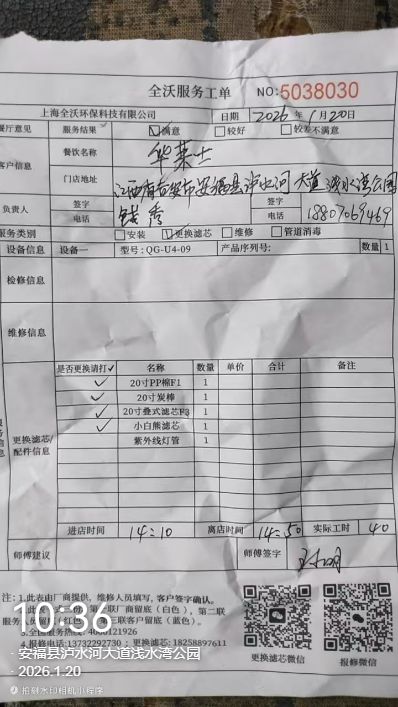 全沃服务工单 NO:5038030
上海全沃环保科技有限公司 日期 2026年1月20日
餐厅意见 服务结果 ☑满意 □较好 □较差不满意
客户信息 餐饮名称 华莱士
门店地址 江西省吉安市安福县泸水河大道浅水湾公园
负责人 签字 钱秀 签字
电话 电话 18807069469
服务类别 □安装 ☑更换滤芯 □维修 □管道消毒
设备信息 设备一 型号:QG-U4-09 产品序列号: 数量 1
检修信息
维修信息
更换滤芯/配件信息
是否更换请打✓ 名称 数量 单价 合计 备注
✓ 20寸PP棉F1 1
✓ 20寸炭棒 1
✓ 20寸叠式滤芯F3 1
✓ 小白熊滤芯 1
紫外线灯管 1
进店时间 14:10 离店时间 14:50 实际工时 40
师傅建议 师傅签字
注: 1.此表由厂商提供,维修人员填写,客户签字确认。
厂留底(白色),第二联
三联客户留底(蓝色)。
3.全国服务热线: 4000121926
4.报修电话:13732292730 ; 更换滤芯:18258897611
更换滤芯微信 报修微信
10:36
安福县泸水河大道浅水湾公园
2026.1.20
抢刻水印相机小程序